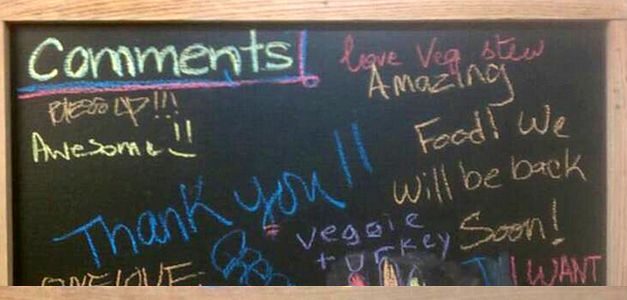 Comments!
love Veg. stew
BLESS UP!!!
Awesome!!
Amazing
Food! We
will be back
Soon!
Thank you!!
veggie
turkey
ONE LOVE
I WANT